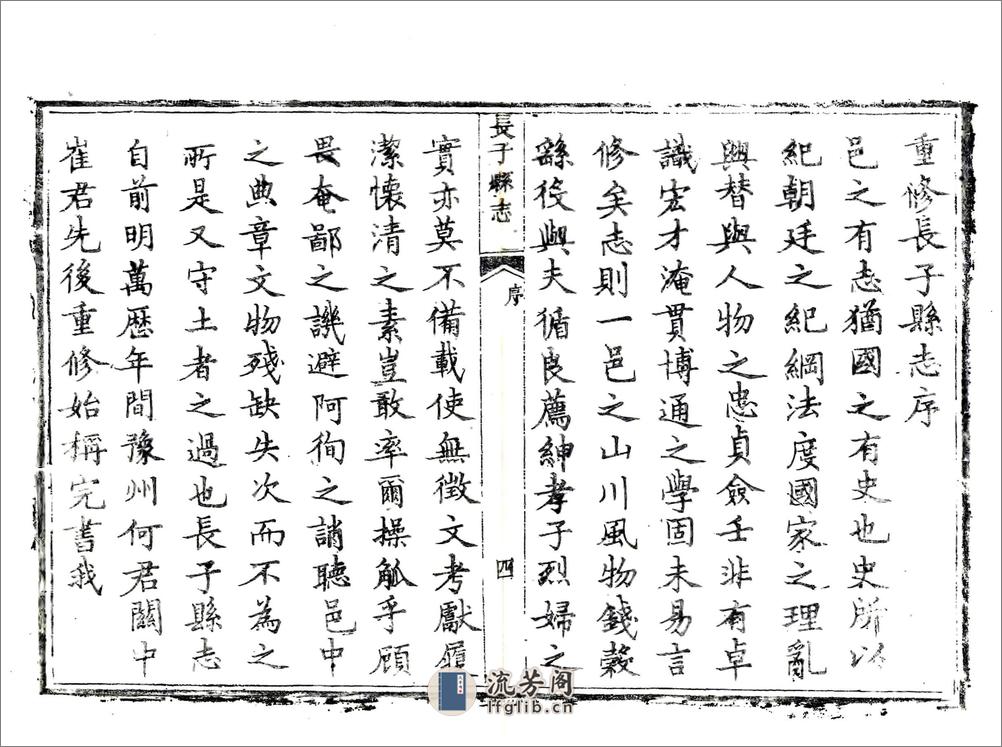 重修長子縣志序
邑之有志猶國之有史也史所以
紀朝廷之紀綱法度國家之理亂
興替與人物之忠貞僉壬非有卓
識宏才淹貫博通之學固未易言
修矣志則一邑之山川風物錢穀
繇役與夫循良薦紳孝子烈婦之
長子縣志
序
四
實亦莫不備載使無徵文考獻履
潔懷清之素豈敢率爾操觚乎顧
畏奄鄙之譏避阿徇之誚聽邑中
之典章文物殘缺失次而不為之
所是又守土者之過也長子縣志
自前明萬歷年間豫州何君關中
崔君先後重修始稱完書我
流芳阁
lfglib.cn